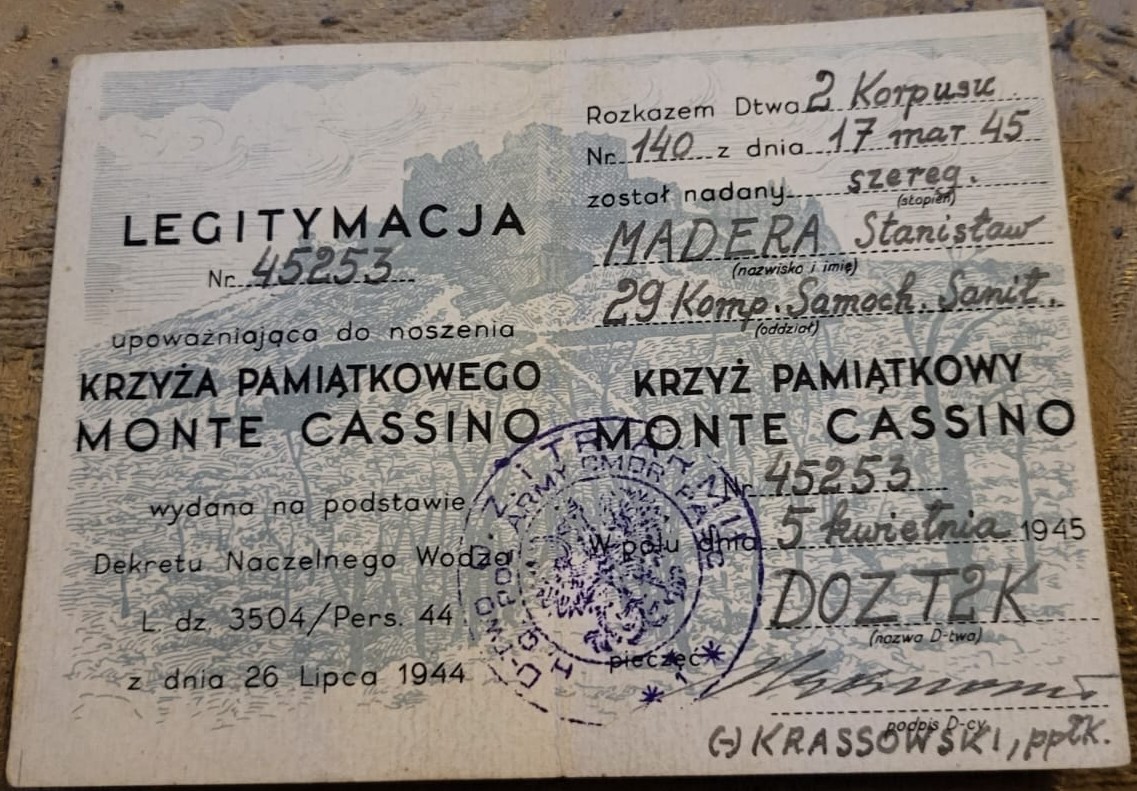 LEGITYMACJA
Nr. 45253
upoważniająca do noszenia
KRZYŻA PAMIĄTKOWEGO
MONTE CASSINO
wydana na podstawie
Dekretu Naczelnego Wodza
L. dz. 3504/Pers. 44
z dnia 26 Lipca 1944
Rozkazem Dtwa 2 Korpusu
Nr. 140 z dnia 17 mar 45
został nadany szereg.
(stopień)
MADERA Stanisław
(nazwisko i imię)
29 Komp. Samoch. Sanit.
(oddział)
KRZYŻ PAMIĄTKOWY
MONTE CASSINO
Nr 45253
W polu dnia 5 kwietnia 1945
DOZT2K
(nazwa D-twa)
pieczęć
podpis D-cy
(-) KRASSOWSKI, ppłk.
ARMY CMDR BASE